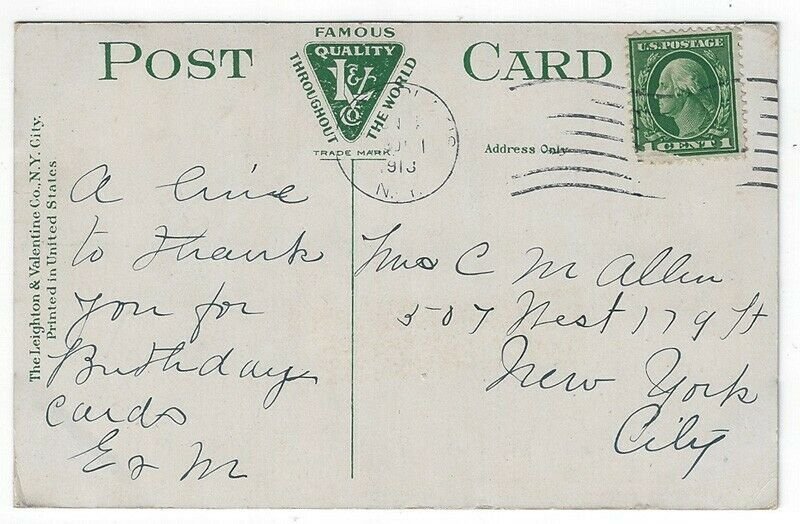 FAMOUS
QUALITY
THROUGHOUT
THE WORLD
L&V
Co
TRADE MARK
POST CARD
U.S. POSTAGE
1 CENT 1
1913
N.Y.
Address Only
The Leighton & Valentine Co., N.Y. City.
Printed in United States
A line
to thank
you for
Birthday
cards
E & M
Mrs C M Allen
507 West 179 St
New York
City